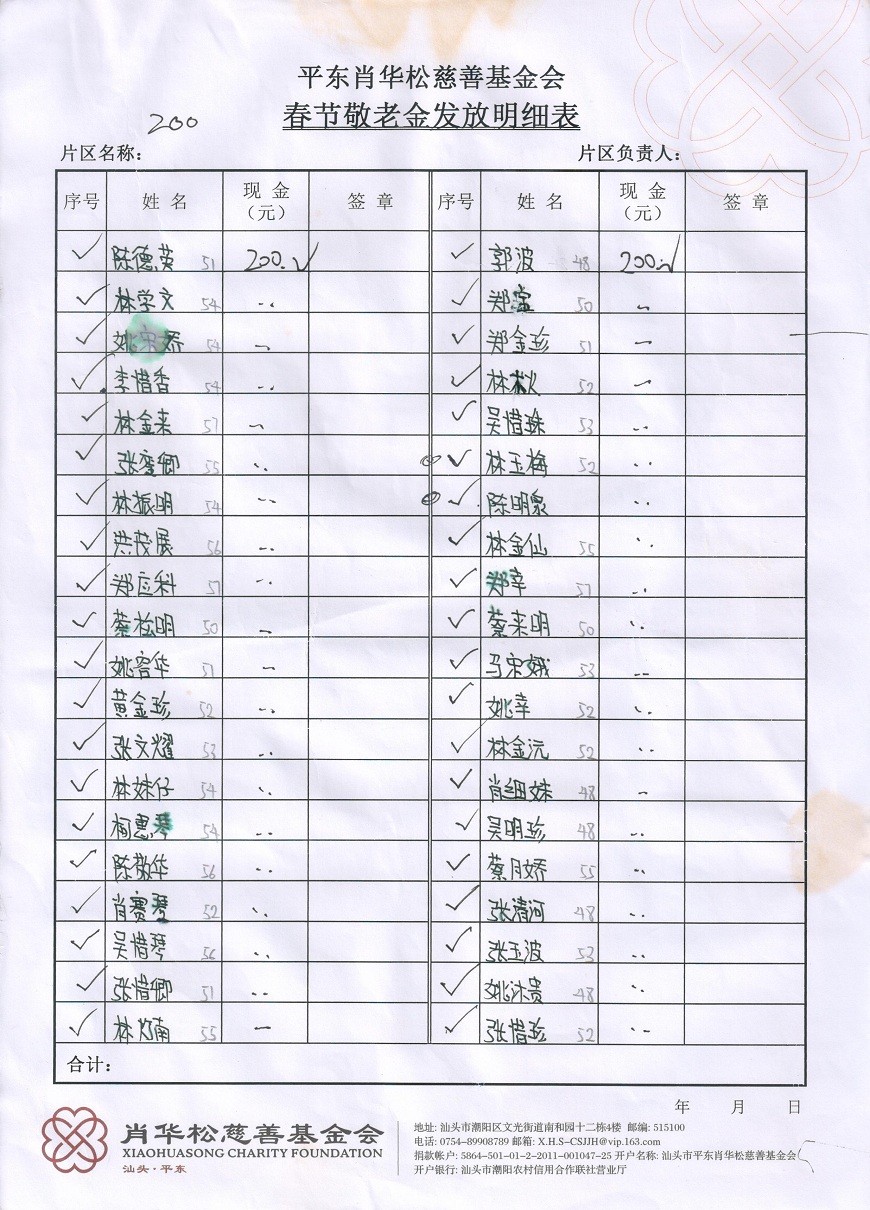 平东肖华松慈善基金会
200
春节敬老金发放明细表
片区名称: 片区负责人:
序号 姓名 现金（元） 签章 序号 姓名 现金（元） 签章
✓ 陈德英 51 200.✓ ✓ 郭波 48 200.✓
✓ 林学文 54 ✓ 郑 50
✓ 姚宋娇 54 ✓ 郑金珍 51
✓ 李惜香 54 ✓ 林秋 52
✓ 林金来 57 ✓ 吴惜珠 53
✓ 张 卿 55 ✓ 林玉梅 52
✓ 林振明 54 ✓ 陈明泉
✓ 洪茂展 56 ✓ 林金仙 55
✓ 郑 科 57 ✓ 郑幸 57
✓ 蔡松明 50 ✓ 蔡来明 50
✓ 姚 华 51 ✓ 马宋娥 53
✓ 黄金珍 52 ✓ 姚幸 52
✓ 张文耀 53 ✓ 林金沅 52
✓ 林妹仔 54 ✓ 肖细妹 48
✓ 柯惠琴 54 ✓ 吴明珍 48
✓ 陈敬华 56 ✓ 蔡月娇 55
✓ 肖赛琴 52 ✓ 张清河 48
✓ 吴惜琴 56 ✓ 张玉波 53
✓ 张惜卿 51 ✓ 姚沐贵 48
✓ 林 南 55 ✓ 张惜珍 52
合计:
年 月 日
肖华松慈善基金会
XIAOHUASONG CHARITY FOUNDATION
汕头·平东
地址: 汕头市潮阳区文光街道南和园十二栋4楼 邮编: 515100
电话: 0754-89908789 邮箱: X.H.S-CSJJH@vip.163.com
捐款帐户: 5864-501-01-2-2011-001047-25 开户名称: 汕头市平东肖华松慈善基金会
开户银行: 汕头市潮阳农村信用合作联社营业厅